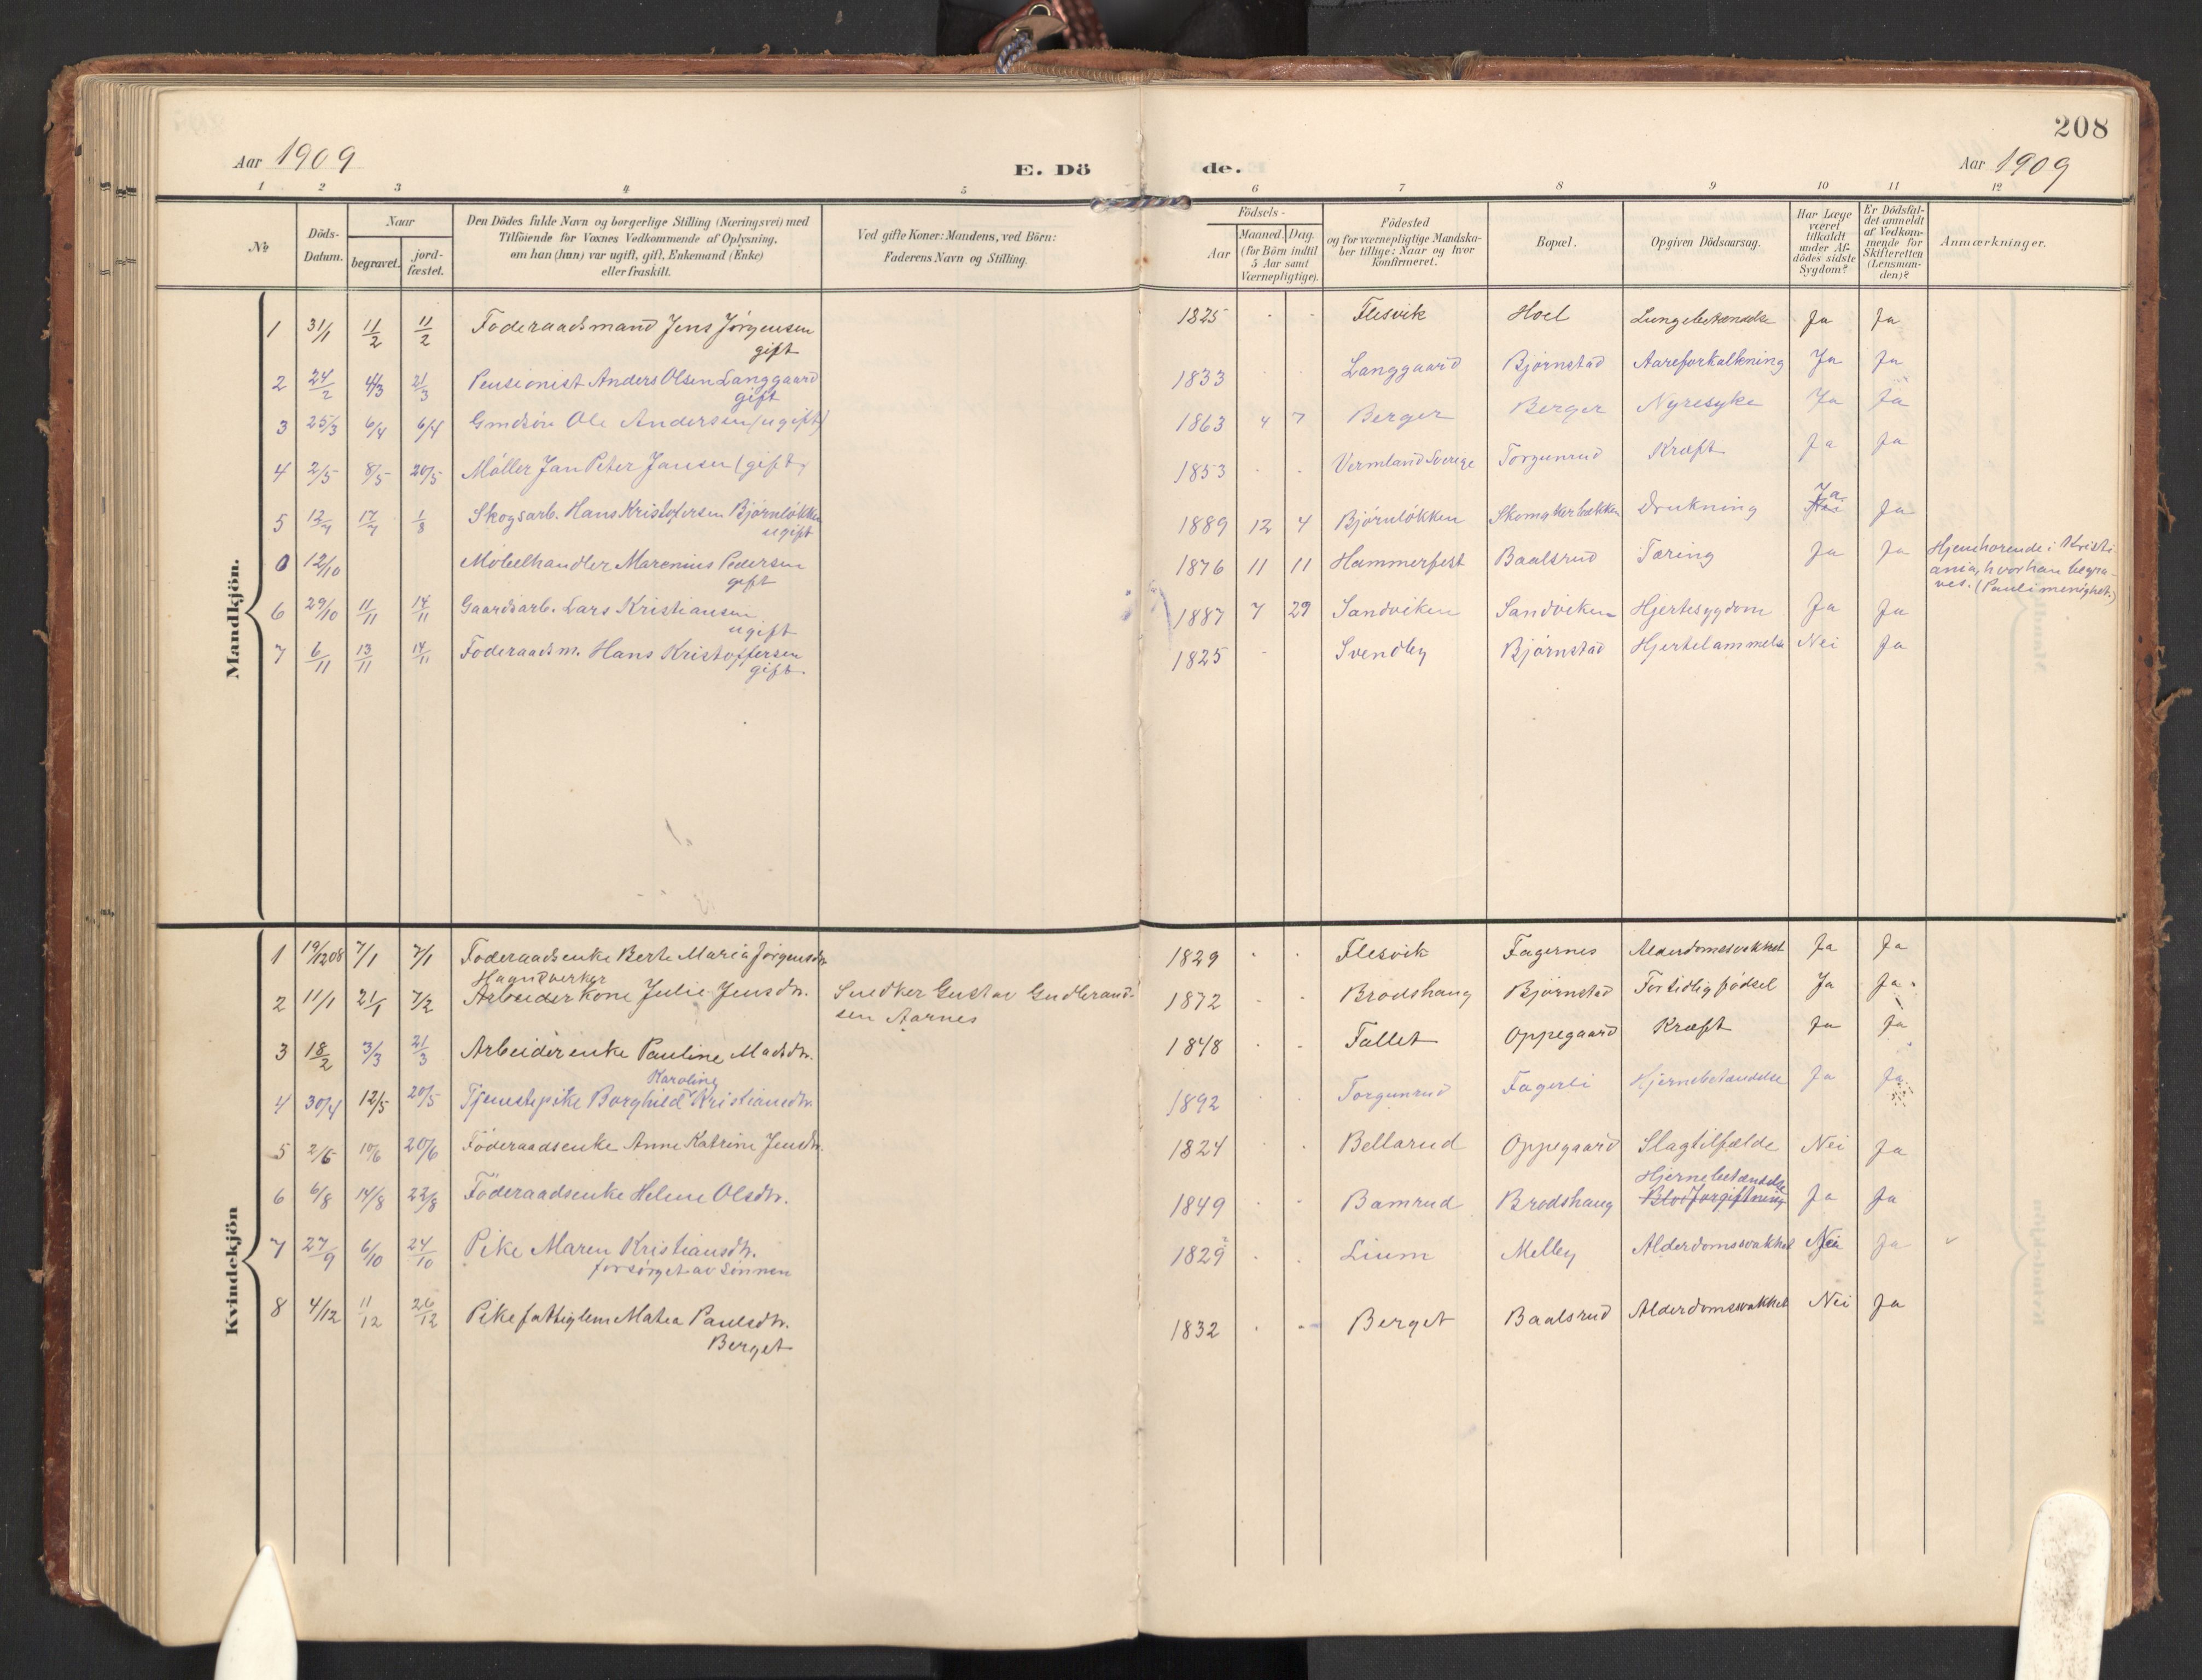 208
Aar 1909
E. Dö
de.
Aar 1909
1 2 3 4 5 6 7 8 9 10 11 12
No
Döds-Datum.
Naar
begravet.
jord-fæstet.
Den Dödes fulde Navn og borgerlige Stilling (Næringsvei) med
Tilföiende for Voxnes Vedkommende af Oplysning,
om han (hun) var ugift, gift, Enkemand (Enke)
eller fraskilt.
Ved gifte Koner: Mandens, ved Börn:
Faderens Navn og Stilling.
Födsels-
Aar
Maaned. Dag.
(for Börn indtil
5 Aar samt
Værnepligtige).
Födested
og for værnepligtige Mandska-
ber tillige: Naar og hvor
Konfirmeret.
Bopæl.
Opgiven Dödsaarsag.
Har Læge
været
tilkaldt
under Af-
dödes sidste
Sygdom?
Er Dödsfal-
det anmeldt
af Vedkom-
mende for
Skifteretten
(Lensman-
den)?
Anmærkninger.
Mandkjön.
1 31/1 11/2 11/2 Föderaadsmand Jens Jörgensen 1825 Flesvik Hoel Lungebetændelse Ja Ja
gift
2 24/2 4/3 21/3 Pensionist Anders Olsen Langgaard 1833 Langgaard Björnstad Aareforkalkning Ja Ja
gift
3 25/3 6/4 6/4 Gmdsön Ole Andersen (ugift) 1863 4 7 Berger Berger Nyresyke Ja Ja
4 2/5 8/5 20/5 Möller Jan Peter Jansen (gift) 1853 Vermland Sverige Torgunrud Kræft Ja Ja
5 12/7 17/7 1/8 Skogsarb. Hans Kristofersen Björnlökken 1889 12 4 Björnlökken Skomakerbakken Drukning Ja Ja
ugift
0 12/10 Möbelhandler Marenius Pedersen 1876 11 11 Hammerfest Baalsrud Tæring Ja Ja Hjemhörende i Kristi-
gift
ania, hvor han begra-
ves. (Pauli menighet.)
6 29/10 11/11 14/11 Gaardsarb. Lars Kristiansen 1887 7 29 Sandviken Sandviken Hjertesygdom Ja Ja
ugift
7 6/11 13/11 14/11 Föderaadsm. Hans Kristoffersen 1825 Svendby Björnstad Hjertelammelse Nei Ja
gift.
Kvindekjön
1 19/12 08 7/1 7/1 Föderaadsenke Berte Maria Jörgensdtr. 1829 Flesvik Fagernes Alderdomssvakhet Ja Ja
Haandverker
2 11/1 21/1 7/2 Arbeiderkone Julie Jensdtr. Snedker Gustav Gudbrand- 1872 Brodshaug Björnstad For tidlig födsel Ja Ja
sen Aarnes
3 18/2 3/3 21/3 Arbeiderenke Pauline Madsdtr. 1848 Fallet Oppegaard Kræft Ja Ja
Karoline
4 30/4 12/5 20/5 Tjenestepike Borghild Kristiansdtr. 1892 Torgunrud Fagerli Hjernebetændelse Ja Ja
5 2/6 10/6 20/6 Föderaadsenke Anne Katrine Jensdtr. 1824 Bellarud Oppegaard Slagtilfælde Nei Ja
Hjernebetændelse
6 6/8 14/8 22/8 Föderaadsenke Helene Olsdtr. 1849 Bamrud Brodshaug Blodforgiftning Ja Ja
7 27/9 6/10 24/10 Pike Maren Kristiansdtr. 1829 Lium Melby Alderdomssvakhet Nei Ja
forsörget av sönnen
8 4/12 11/12 26/12 Pike fattiglem Matea Paulsdtr. 1832 Berget Baalsrud Alderdomssvakhet Nei Ja
Berget